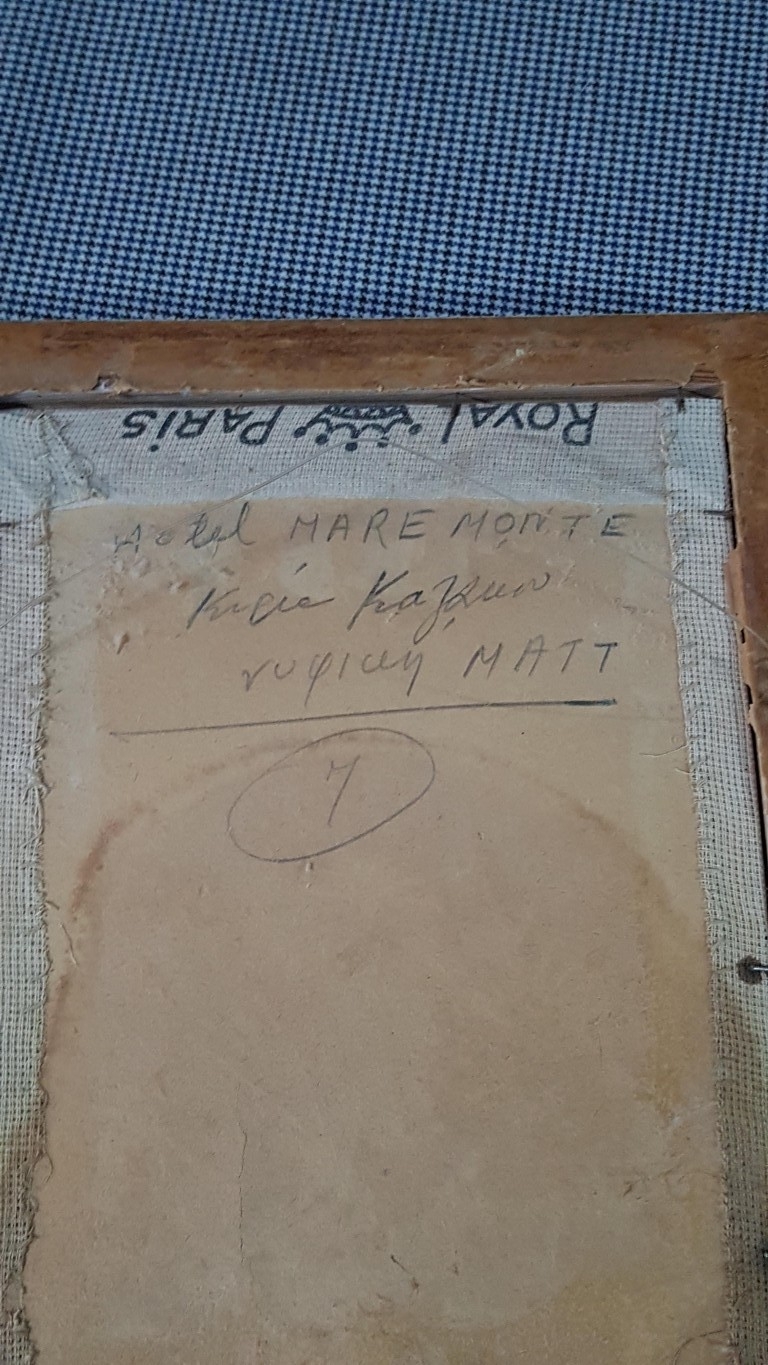 ROYAL PARIS
Hotel MARE MONTE
Κυρία
MATT
7